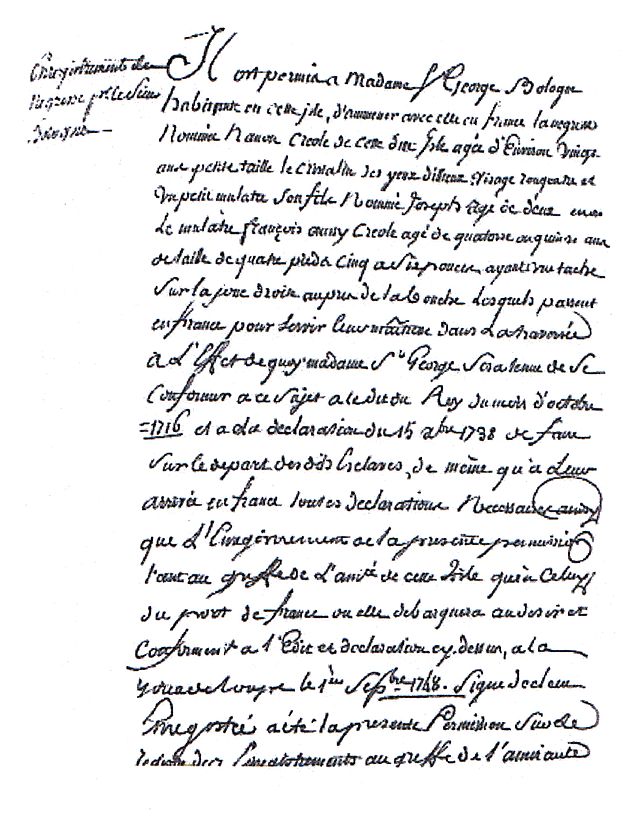 Enregistrement de
negresse pr. le Sieur
Il est permis a Madame St George Bologne
habitante en cette isle, d'ammener avec elle en france la negresse
Nommée Nanon Creole de cette dite Isle agée d'Environ Vingt
ans petite taille le cristalin des yeux Visage rougeatre et
Un petit mulatre Son fils Nommé Joseph agé de deux ans
Le mulatre françois Creole agé de quatorze ou quinze ans
de taille de quatre pieds Cinq a Six pouces ayant une tache
Sur la joue droite aupres de la bouche Lesquels passent
en france pour servir leur maitresse dans La traversée
a L'Effet de quoy madame St George Sera tenue de Se
Conformer a ce Sujet a ledit du Roy du mois d'octobre
=1716 et a La declaration du 15 xbre 1738 de faire
Sur le depart desdits Esclaves, de même qu'a Leur
arrivée en france toutes declarations Necessaires ainsy
que L'Enregistrement de la presente permission
tant au greffe de L'amté de cette Isle qu'a Celuy
du port de france ou elle debarquera au desir et
Conformement a l'Edit et declaration cy dessus, a la
Guadeloupe le 1er Sepbre 1748. Signé declieu
Enregistré a été la presente Permission Sur Le
registre des Enregistrements au greffe de l'amirauté